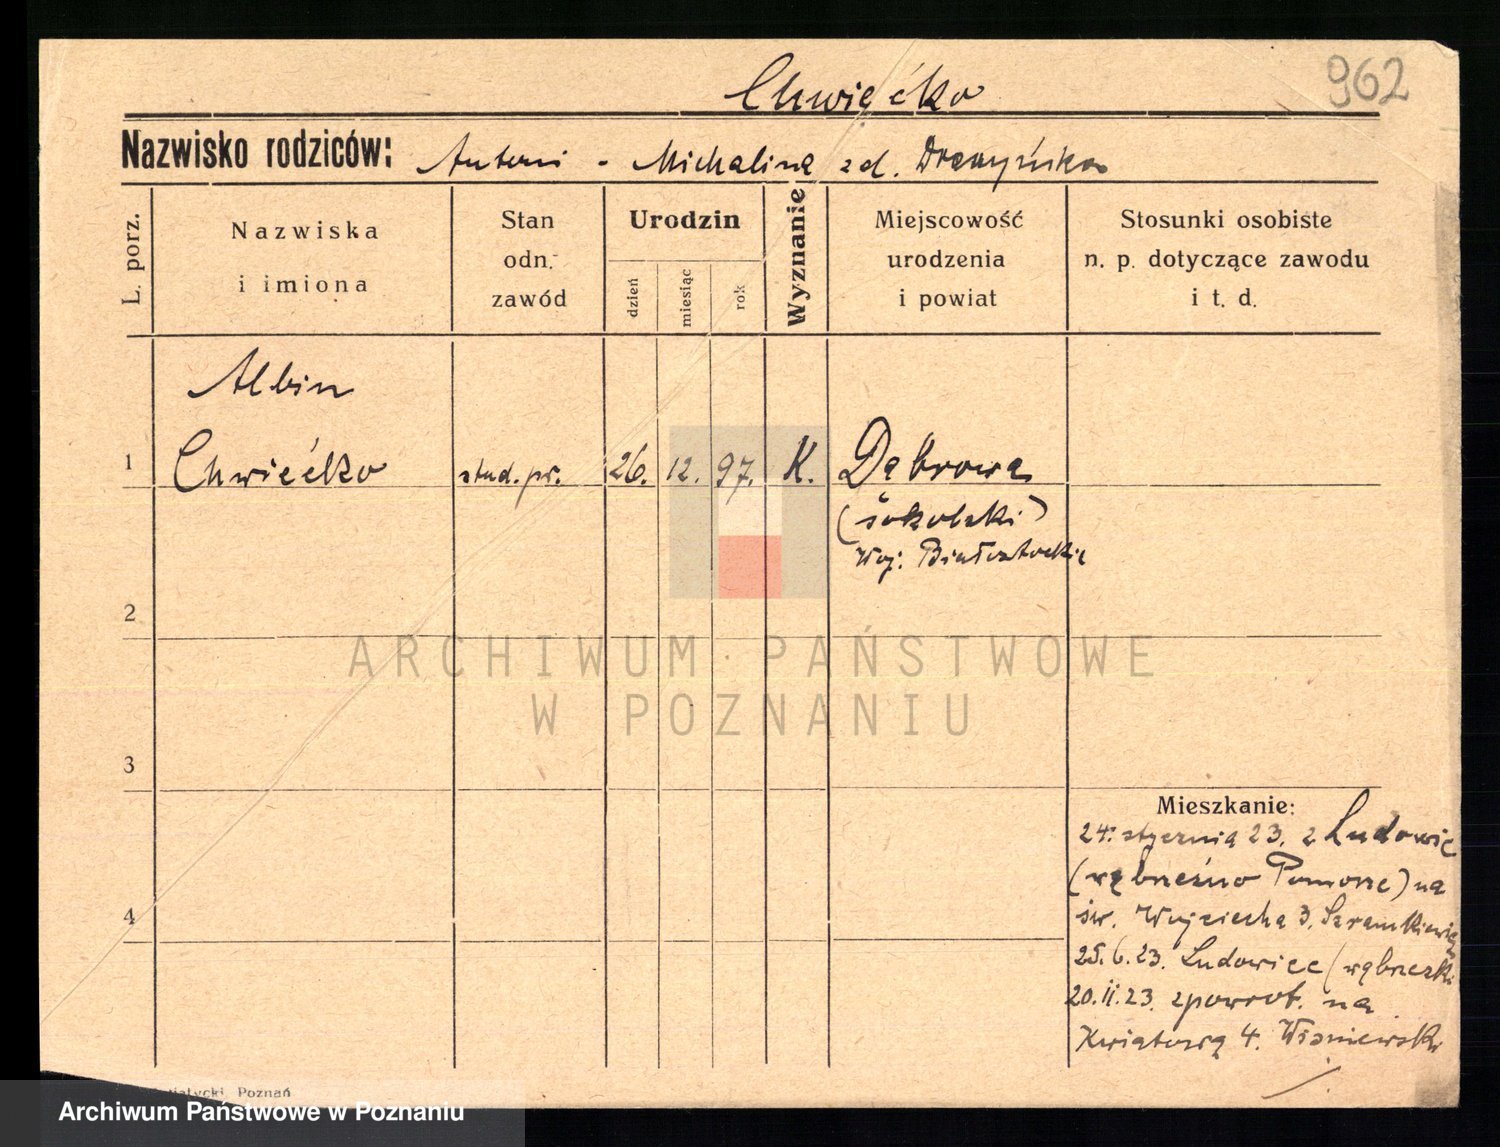 Chwiećko
962
Nazwisko rodziców: Antoni - Michalina zd.
L. porz.
Nazwiska i imiona
Stan odn. zawód
Urodzin
dzień
miesiąc
rok
Wyznanie
Miejscowość urodzenia i powiat
Stosunki osobiste n. p. dotyczące zawodu i t. d.
Albin
1 Chwiećko stud. pr. 26. 12. 97. K. Dąbrowa
(sokolski)
Woj. Białostockie
2
3
4
Mieszkanie:
24. stycznia 23. z Ludowic
(wąbrzeźno Pomorze) na
św. Wojciecha 3. Szramkiewicz
25.6.23. Ludowice (wąbrzeski
20.II.23. zpowrot. na
Kwiatową 4. Wisniewska
Poznań
ARCHIWUM PAŃSTWOWE
W POZNANIU
Archiwum Państwowe w Poznaniu